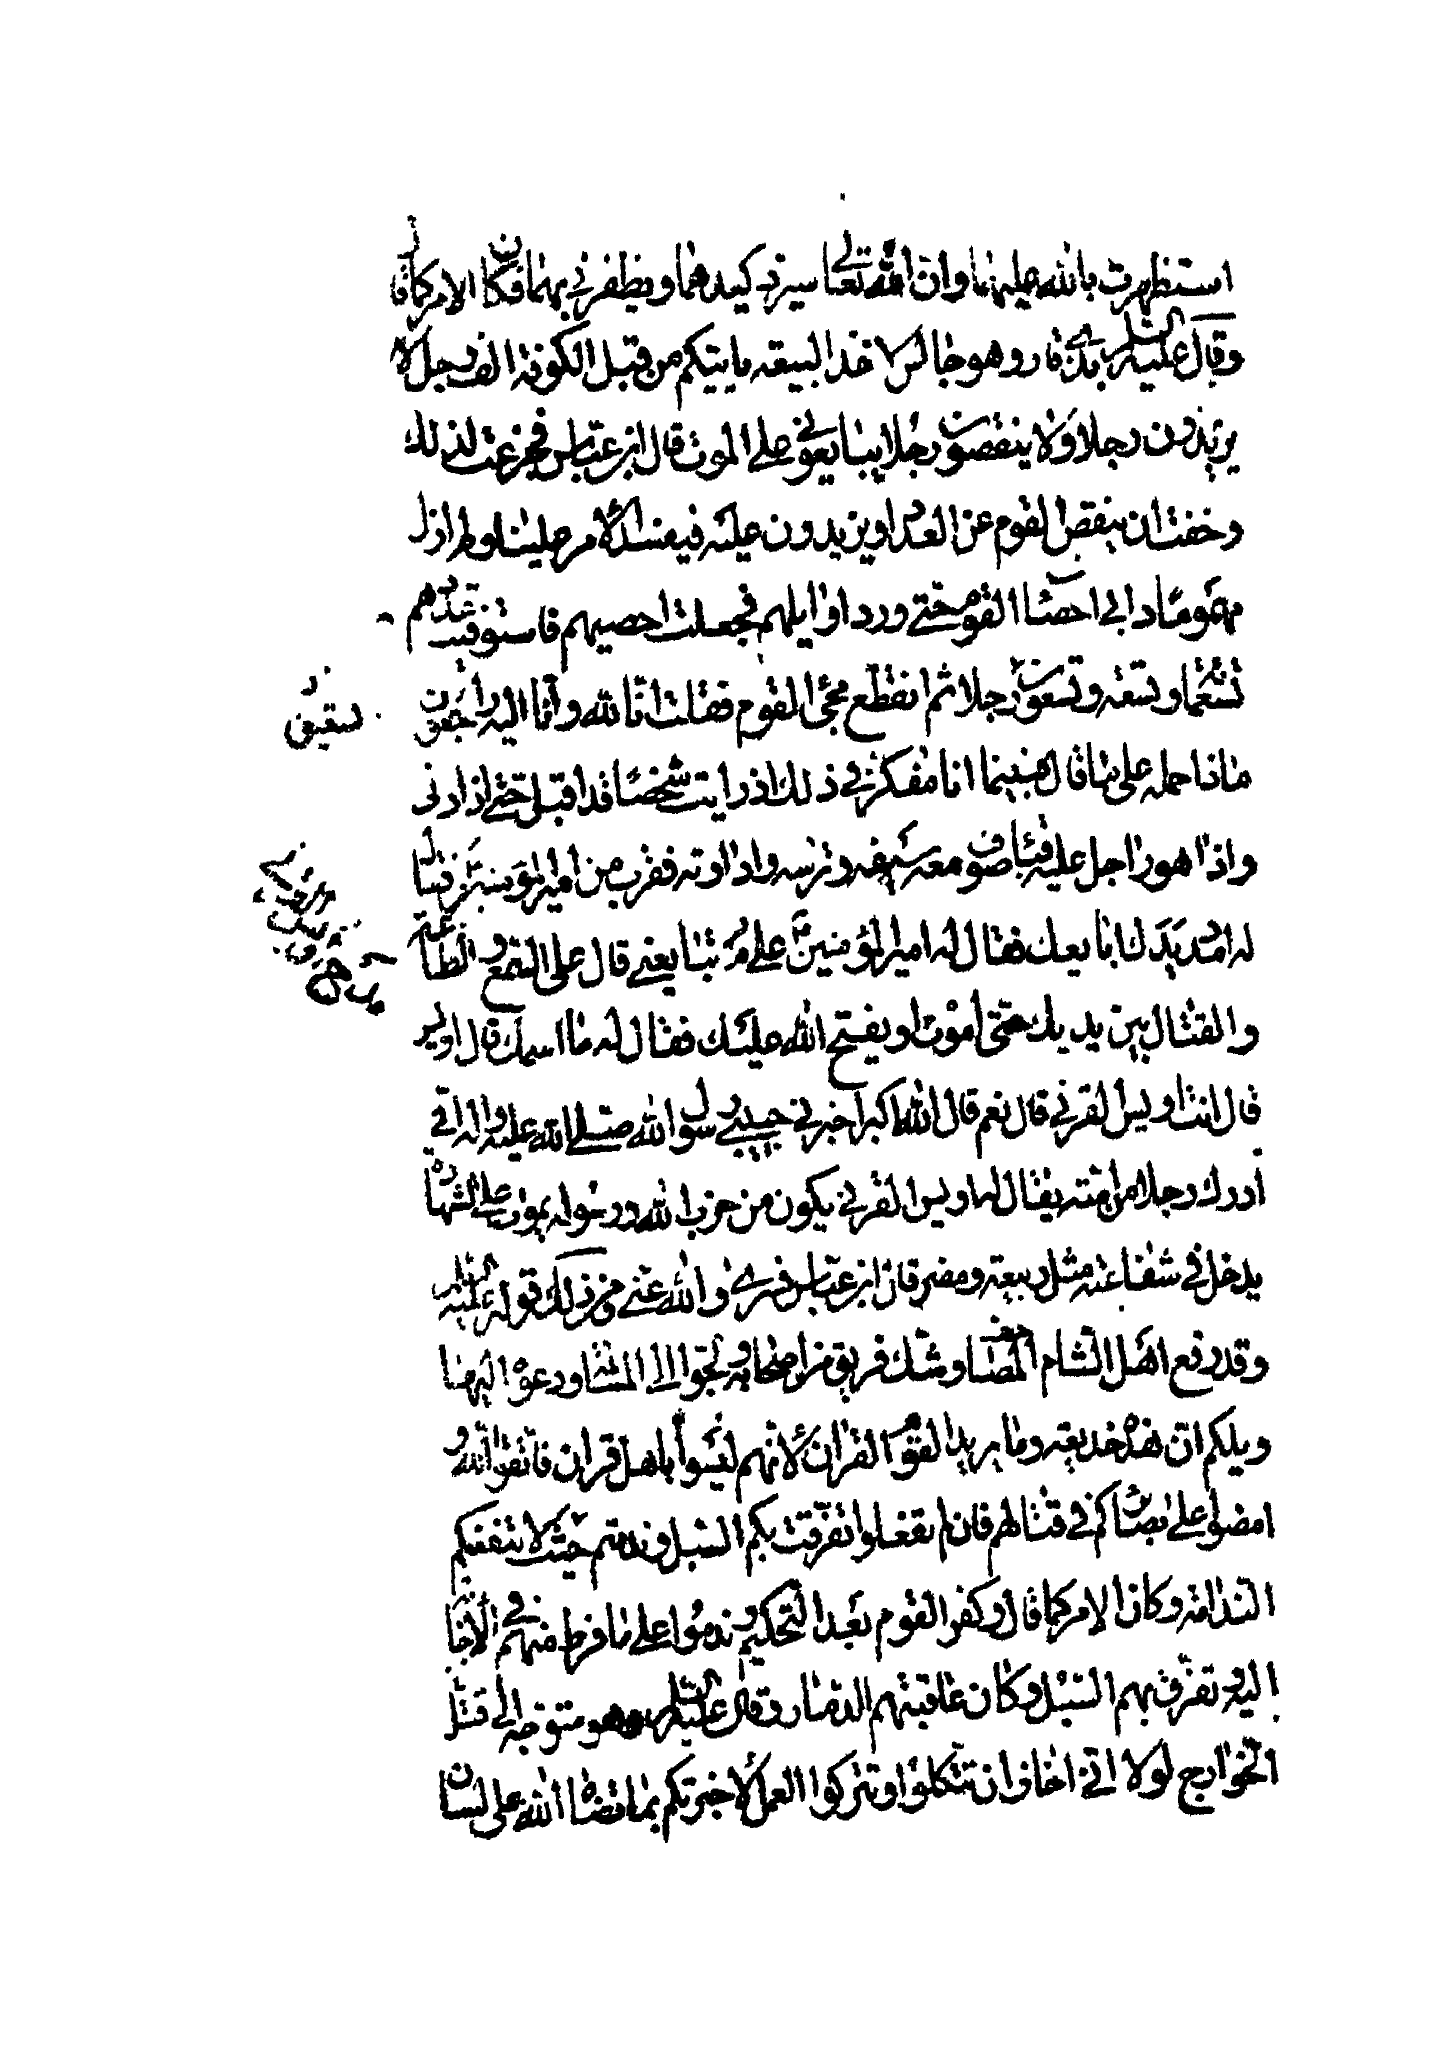 استظهرت بالله عليهما وان الله تعالى سيرد كيدهما ويظفرني بهما فكان الامر كما قال
وقال عليه السلم بذي قار وهو جالس لاخذ البيعة ياتيكم من قبل الكوفة الف رجل لا
يزيدون رجلا ولا ينقصون رجلا يبايعوني على الموت قال ابن عباس فجزعت لذلك
وخفت ان ينقص القوم عن العدد او يزيدون عليه فيفسد الامر علينا ولم ازل
مهموما دابي احصاء القوم حتى ورد اوايلهم فجعلت احصيهم فاستوفيت عددهم
تسعماة وتسعة وتسعون رجلا ثم انقطع مجئ القوم فقلت انا لله وانا اليه راجعون
ماذا حمله على ما قال فبينما انا مفكر في ذلك اذ رايت شخصا قد اقبل حتى اذا دنى
واذا هو راجل عليه قباء صوف معه سيفه وترسه واداوته فقرب من امير المؤمنين فقال
له امدد يدك ابايعك فقال له امير المؤمنين على م تبايعني قال على السمع والطاعة
والقتال بين يديك حتى اموت او يفتح الله عليك فقال له ما اسمك قال اويس
قال انت اويس القرني قال نعم قال الله اكبر اخبرني حبيبي رسول الله صلى الله عليه واله اني
ادرك رجلا من امته يقال له اويس القرني يكون من حزب الله ورسوله يموت على الشهادة
يدخل في شفاعته مثل ربيعة ومضر قال ابن عباس فسري والله عني ومن ذلك قوله عليه السلم
وقد رفع اهل الشام المصاحف وشك فريق من اصحابه ولجوا الى المسالمة ودعوه اليها
ويلكم ان هذه خديعة وما يريد القوم القران لانهم ليسوا باهل قران فاتقوا الله و
امضوا على بصائركم في قتالهم فان لم تفعلوا تفرقت بكم السبل وندمتم حيث لا تنفعكم
الندامة وكان الامر كما قال وكفر القوم بعد التحكيم وندموا على ما فرط منهم في الاجابة
اليه وتفرق بهم السبل وكان عاقبتهم الدمار وقال عليه السلم وهو متوجه الى قتال
الخوارج لولا اني اخاف ان تتكلوا وتتركوا العمل لاخبرتكم بما قضاه الله على لسان